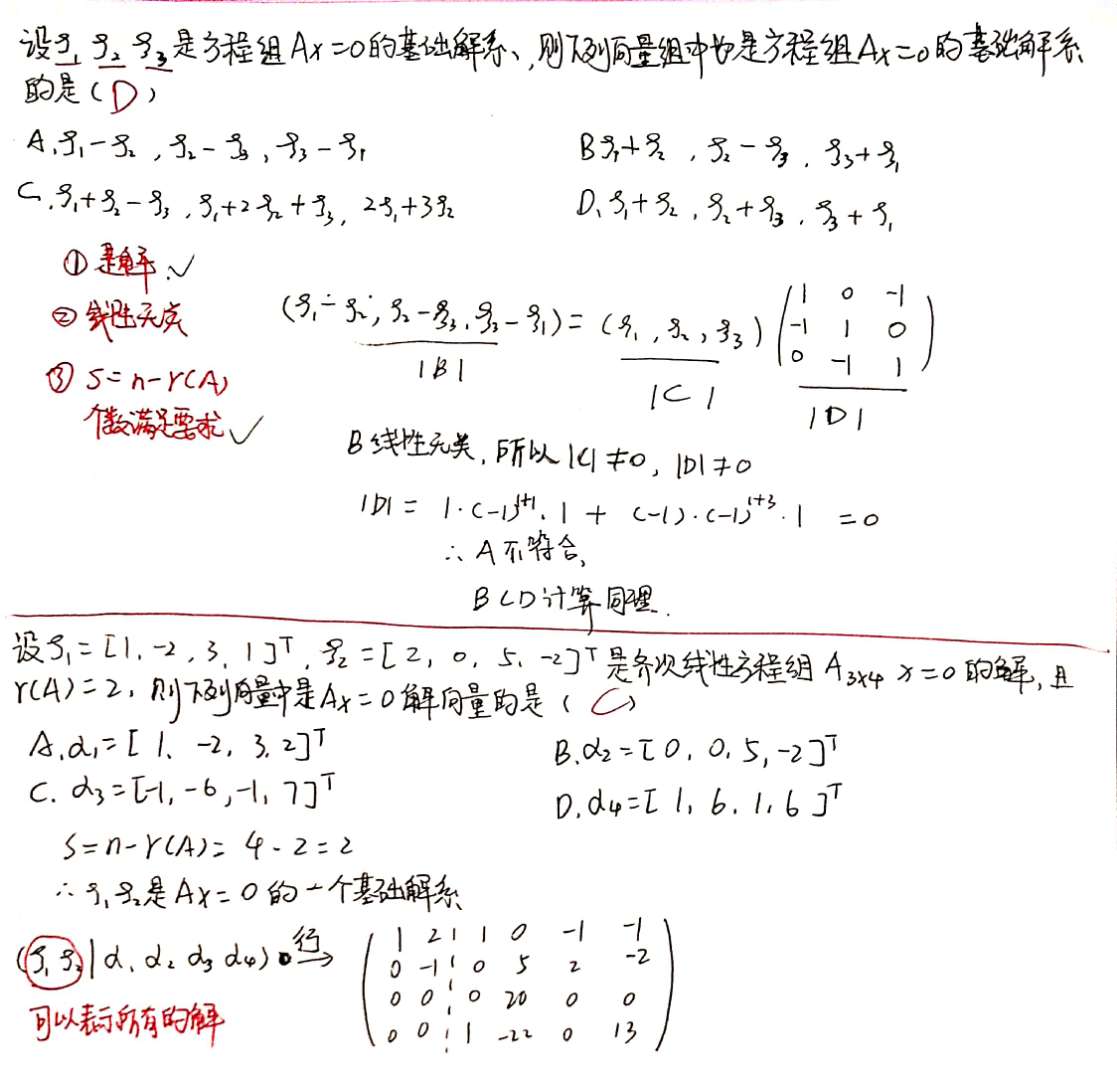 设ξ₁ ξ₂ ξ₃是方程组Ax=0的基础解系,则下列向量组中也是方程组Ax=0的基础解系
的是(D)
A.ξ₁-ξ₂,ξ₂-ξ₃,ξ₃-ξ₁ B ξ₁+ξ₂,ξ₂-ξ₃,ξ₃+ξ₁
C.ξ₁+ξ₂-ξ₃,ξ₁+2ξ₂+ξ₃,2ξ₁+3ξ₂ D、ξ₁+ξ₂,ξ₂+ξ₃,ξ₃+ξ₁
①是解.✓
②线性无关
③ S=n-r(A)
个数满足要求✓
(ξ₁-ξ₂,ξ₂-ξ₃,ξ₃-ξ₁)=(ξ₁,ξ₂,ξ₃)
1 0 -1
-1 1 0
0 -1 1
|B| |C| |D|
B线性无关,所以|C|≠0,|D|≠0
|D|= 1·(-1)¹⁺¹·1+(-1)·(-1)¹⁺³·1 =0
∴A不符合,
BCD计算同理.
设ξ₁=[1,-2,3,1]ᵀ,ξ₂=[2,0,5,-2]ᵀ是齐次线性方程组A₃ₓ₄ x=0的解,且
r(A)=2,则下列向量中是Ax=0解向量的是(C)
A.α₁=[1,-2,3,2]ᵀ B.α₂=[0,0,5,-2]ᵀ
C. α₃=[-1,-6,-1,7]ᵀ D.α₄=[1,6,1,6]ᵀ
S=n-r(A)=4-2=2
∴ξ₁ξ₂是Ax=0的一个基础解系
(ξ₁ξ₂|α₁α₂α₃α₄) 行→
1 2 1 0 -1 -1
0 -1 0 5 2 -2
0 0 0 20 0 0
0 0 1 -22 0 13
可以表示所有的解